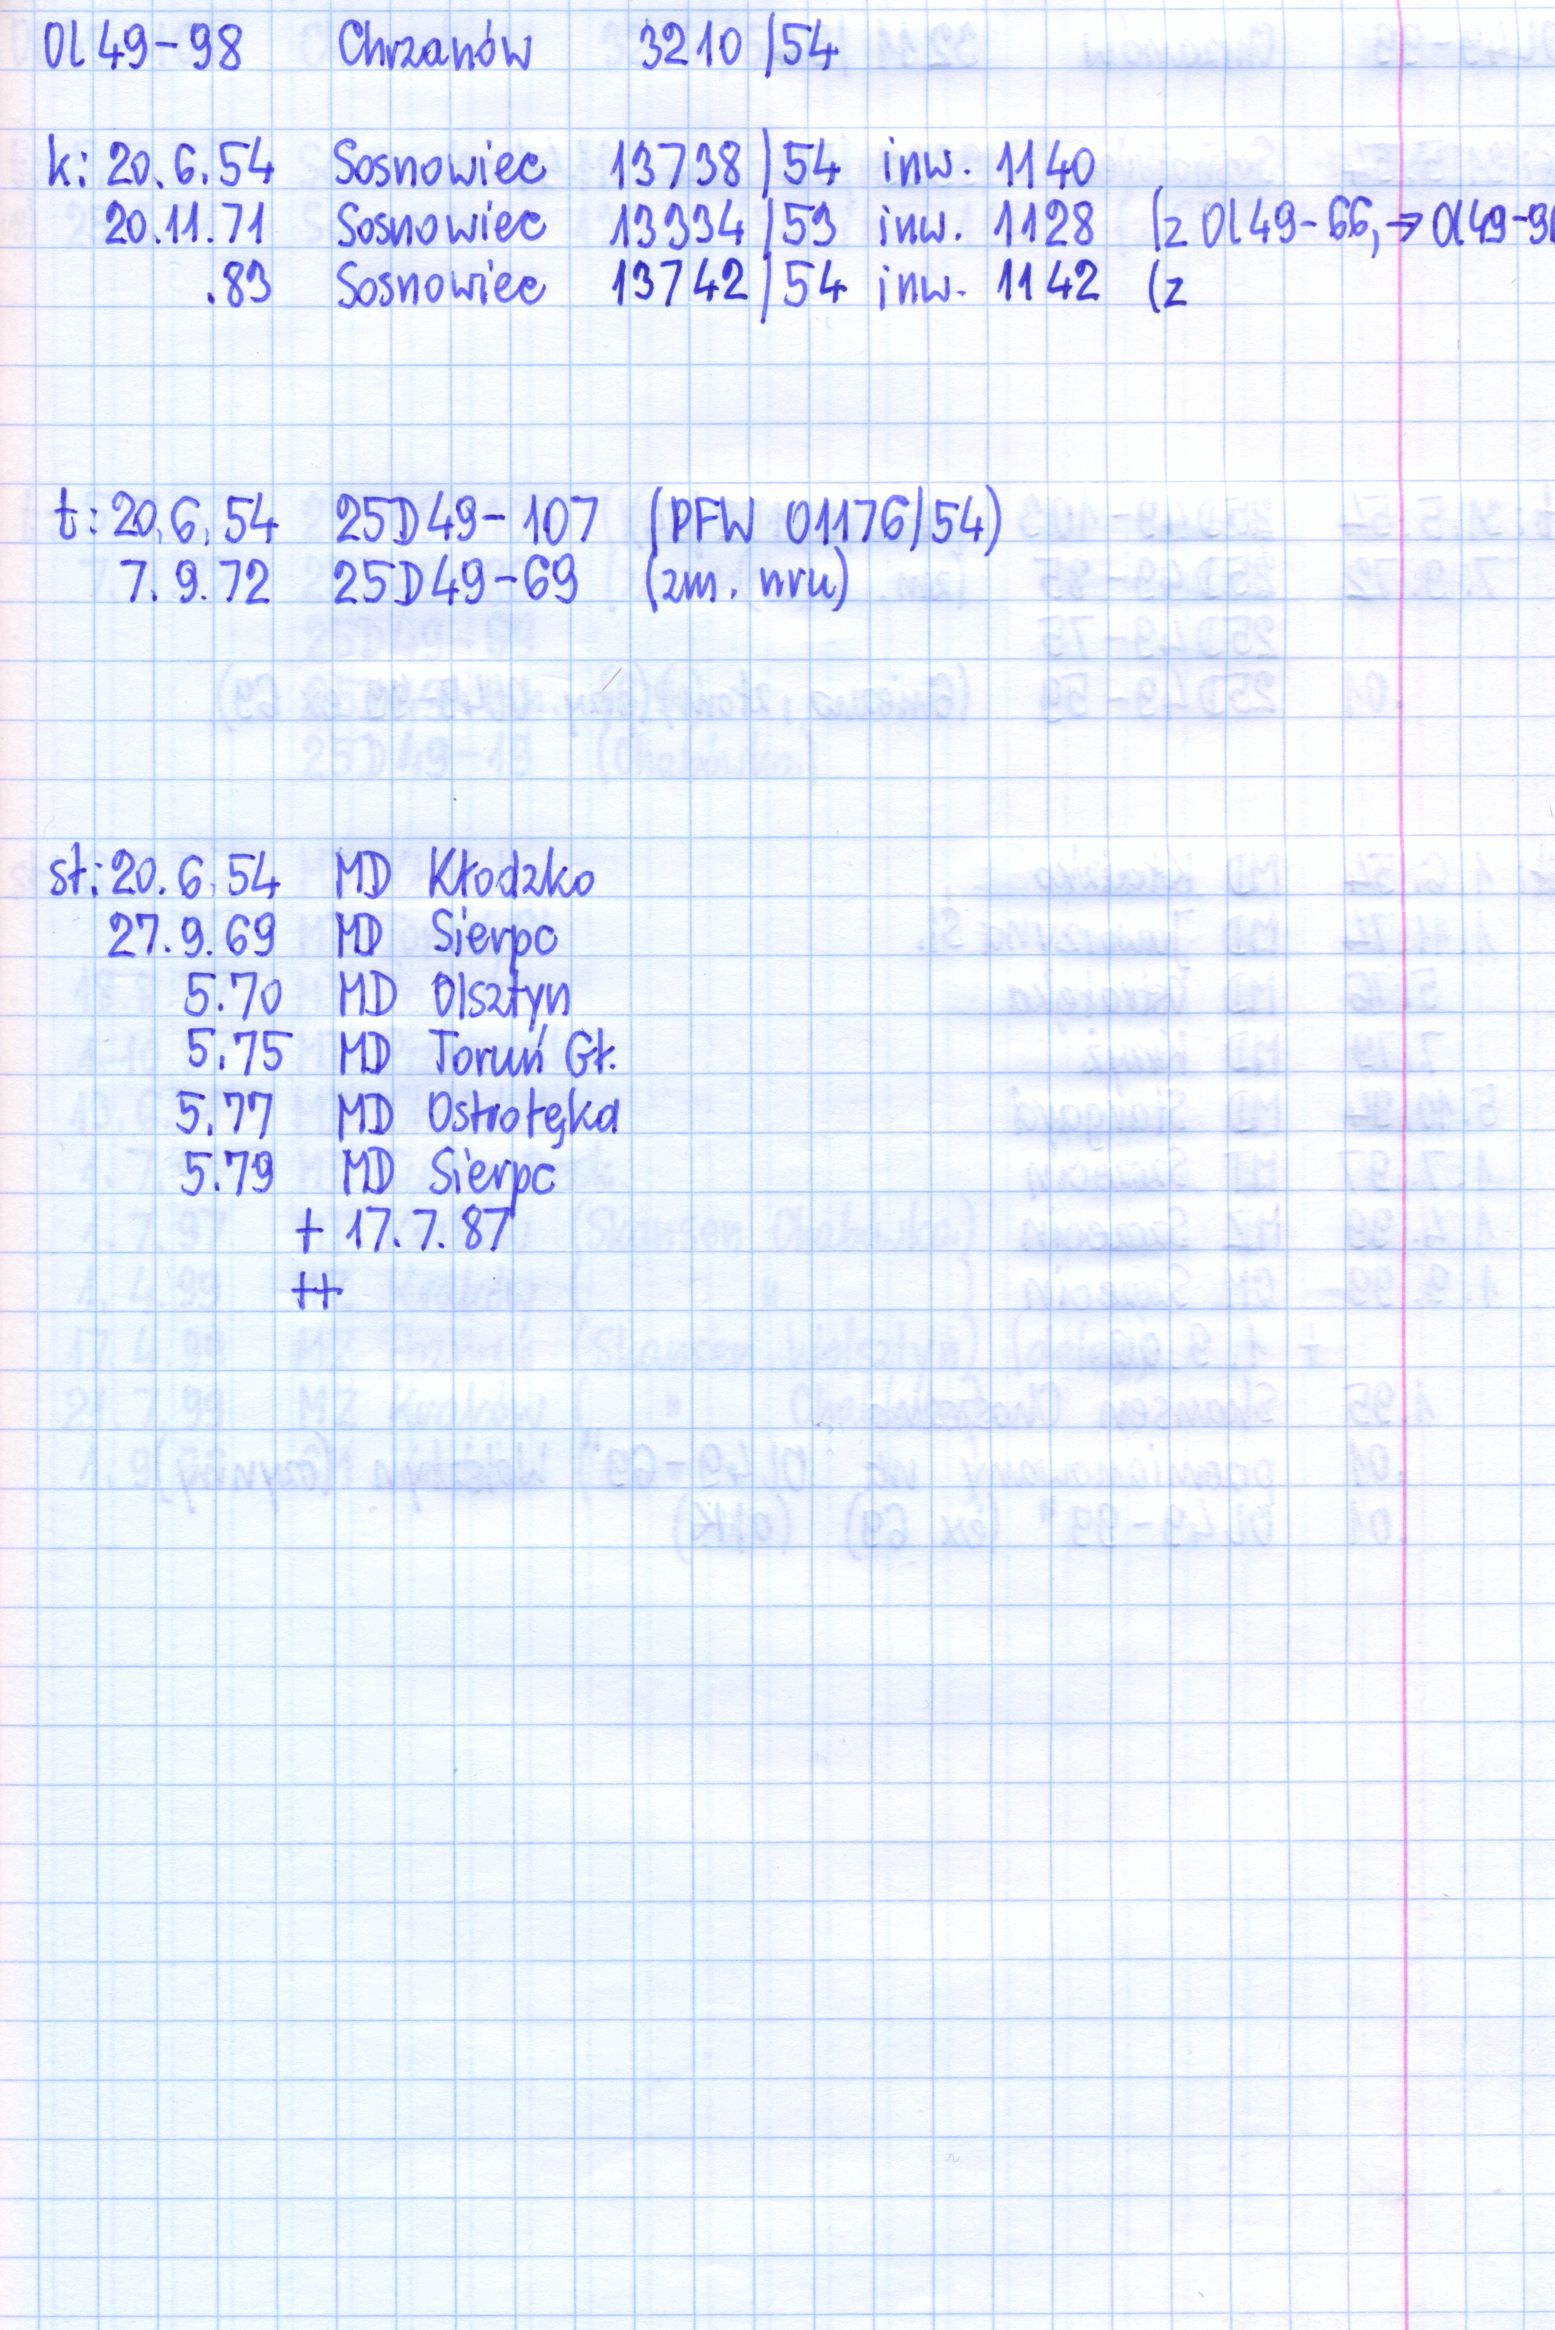 Ol49-98 Chrzanów 3210/54
k: 20.6.54 Sosnowiec 13738/54 inw. 1140
20.11.71 Sosnowiec 13334/53 inw. 1128 (z Ol49-66, → Ol49-9
.83 Sosnowiec 13742/54 inw. 1142 (z
t: 20.6.54 25D49-107 (PFW 01176/54)
7.9.72 25D49-69 (zm. nru)
st: 20.6.54 MD Kłodzko
27.9.69 MD Sierpc
5.70 MD Olsztyn
5.75 MD Toruń Gł.
5.77 MD Ostrołęka
5.79 MD Sierpc
+ 17.7.87
++